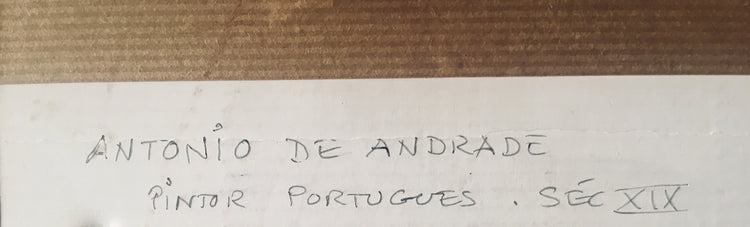 ANTONIO DE ANDRADE
PINTOR PORTUGUES . SÉC XIX